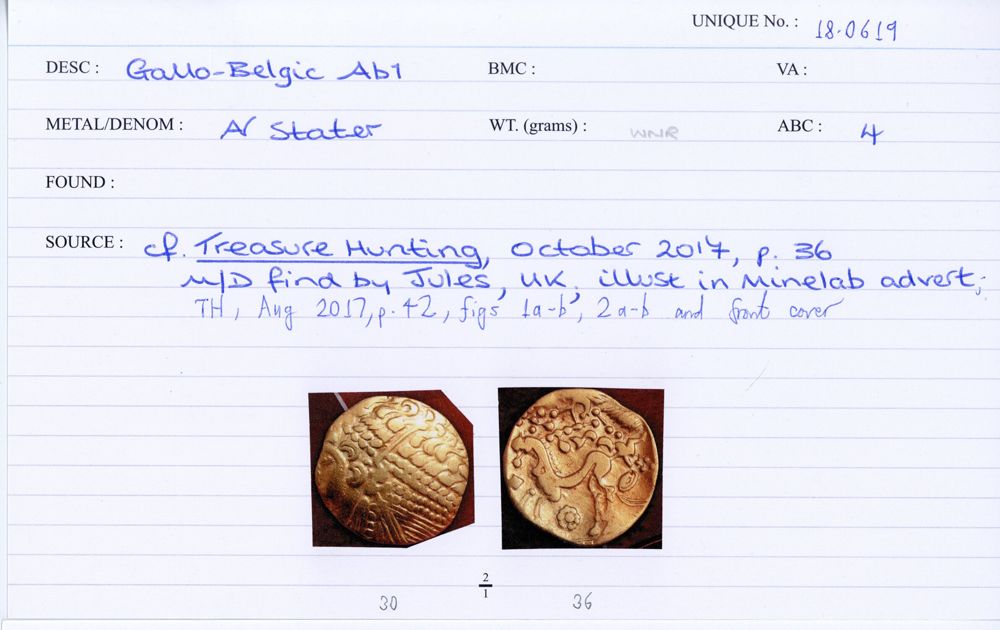 UNIQUE No. : 18·0619
DESC : Gallo-Belgic Ab1 BMC : VA :
METAL/DENOM : AV Stater WT. (grams) : WNR ABC : 4
FOUND :
SOURCE : cf. Treasure Hunting, October 2017, p. 36
M/D find by Jules, UK, illust in Minelab advert;
TH, Aug 2017, p. 42, figs 1a-b, 2a-b and front cover
2
1
30 36